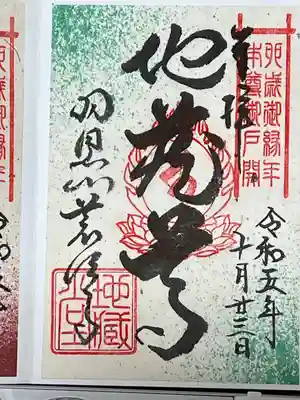 卯歳御縁年
本尊御戸開
奉拝
令和五年
十月廿三日
地蔵尊
羽黒山荒澤寺
地蔵
卯歳御縁年
令和